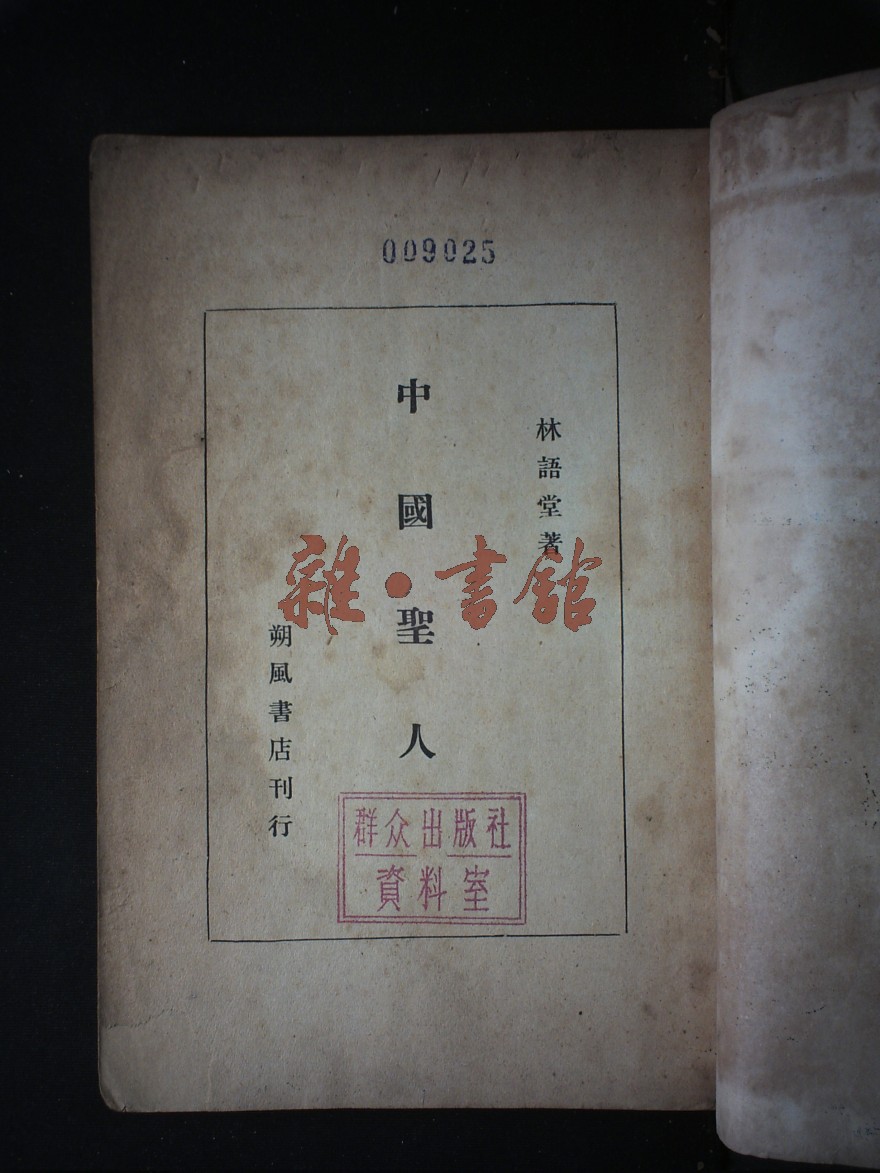 009025
林語堂著
中國聖人
朔風書店刊行
雜·書館
群众出版社
資料室